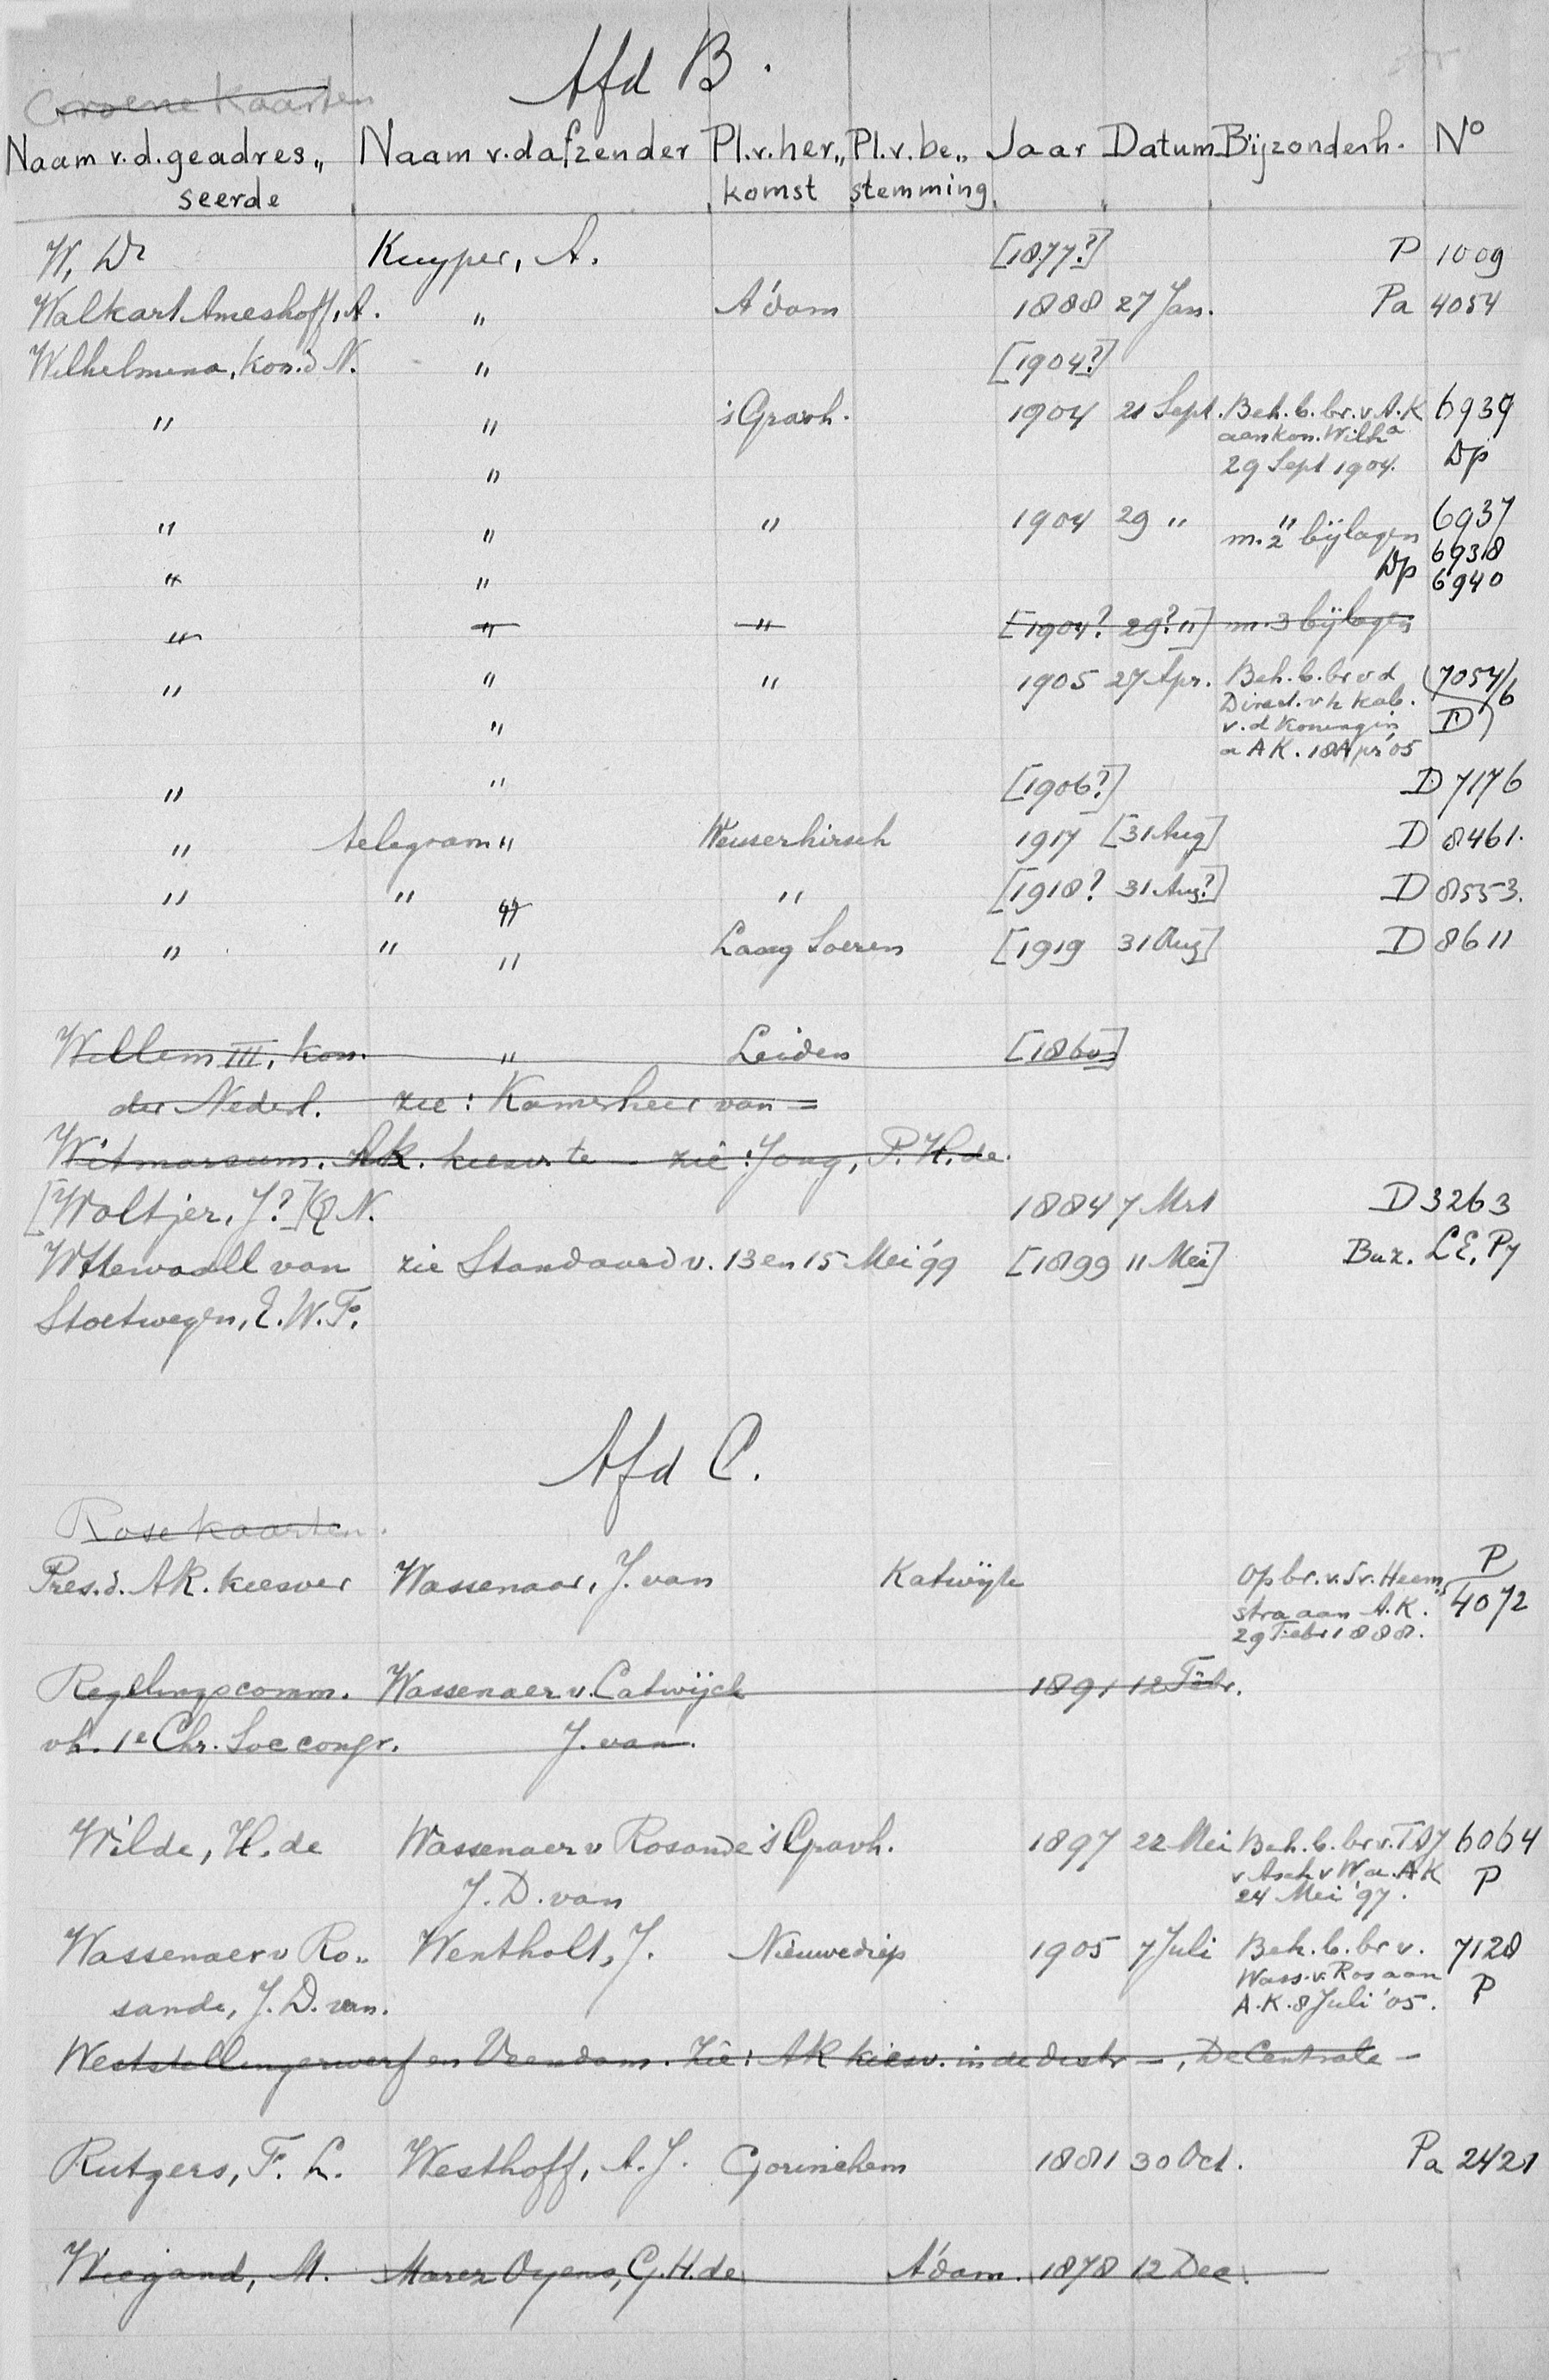 Afd B.
Groene Kaarten
Naam v.d. geadres„ Naam v.d afzender Pl.v.her„ Pl.v.be„ Jaar Datum Bijzonderh. No
seerde komst stemming
W, Dr Kuyper, A. [1877?] P 1009
Walkart Ameshoff, A. " A'dam 1888 27 Jan. Pa 4054
Wilhelmina, kon. d N. " [1904?]
" " 's Gravh. 1904 21 Sept. Beh. b. br. v. A.K 6939
aan kon. Wilha
" 29 Sept 1904. Dp
" " " 1904 29 " " 6937
m. 2 bijlagen 6938
" " Dp 6940
" " " [1904? 29? "] m. 3 bijlagen
" " " 1905 27 Apr. Beh. b. br v d (7054/6
Direct. v h kab.
" v. d Koningin D)
a A K. 18 Apr '05
" " [1906?] D 7176
" telegram " Weisserhirsch 1917 [31 Aug] D 8461.
" " " " [1918? 31 Aug?] D 8553.
" " " Laag Soeren [1919 31 Aug] D 8611
Willem III, kon. " Leiden [1860]
der Nederl. zie: Kamerheer van =
Witmarsum. AR. kiesv. te — zie: Jong, P. H. de.
[Woltjer, J?] N. 1884 7 Mrt D 3263
Wttewaall van zie Standaard v. 13 en 15 Mei '99 [1899 11 Mei] Buz. LE, Py
Stoetwegen, E. W. F.
Afd C.
Rose kaarten.
Pres. d. AR. kiesver Wassenaar, J. van Katwijk Op br. v. Sv. Heem„ P
stra aan A.K. 4072
29 Febr 1888.
Regelingscomm. Wassenaer v. Catwijck 1891 12 Febr.
vh. 1e Chr. Soc congr. J. van.
Wilde, H. de Wassenaer v Rosande 's Gravh. 1897 22 Mei Beh. b. br v. T A J 6064
J. D. van v Asch v W a. A K P
24 Mei '97.
Wassenaer v Ro„ Wentholt, J. Nieuwediep 1905 7 Juli Beh. b. br v. 7128
Wass. v. Ros aan
sande, J. D. van. A.K. 8 Juli '05. P
Weststellingerwerf en Veendam. Zie: AR kiesv. in de distr —, De Centrale —
Rutgers, F. L. Westhoff, A. J. Gorinchem 1881 30 Oct. Pa 2421
Wiegand, M. Marez Oyens, G. H. de A'dam. 1878 12 Dec.